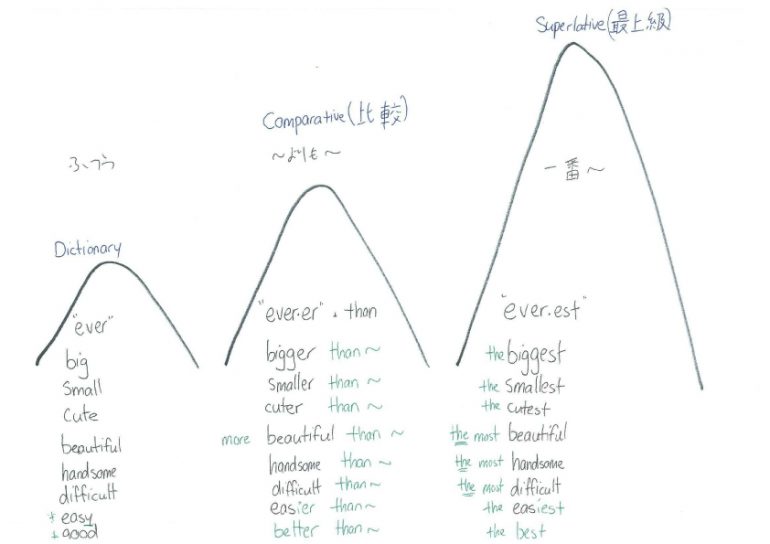 ふつう
Dictionary
"ever"
big
small
cute
beautiful
handsome
difficult
* easy
* good
Comparative(比較)
～よりも～
"ever.er" + than
bigger than ～
smaller than ～
cuter than ～
more beautiful than ～
handsome than ～
difficult than ～
easier than ～
better than ～
Superlative(最上級)
一番～
"ever.est"
the biggest
the smallest
the cutest
the most beautiful
the most handsome
the most difficult
the easiest
the best